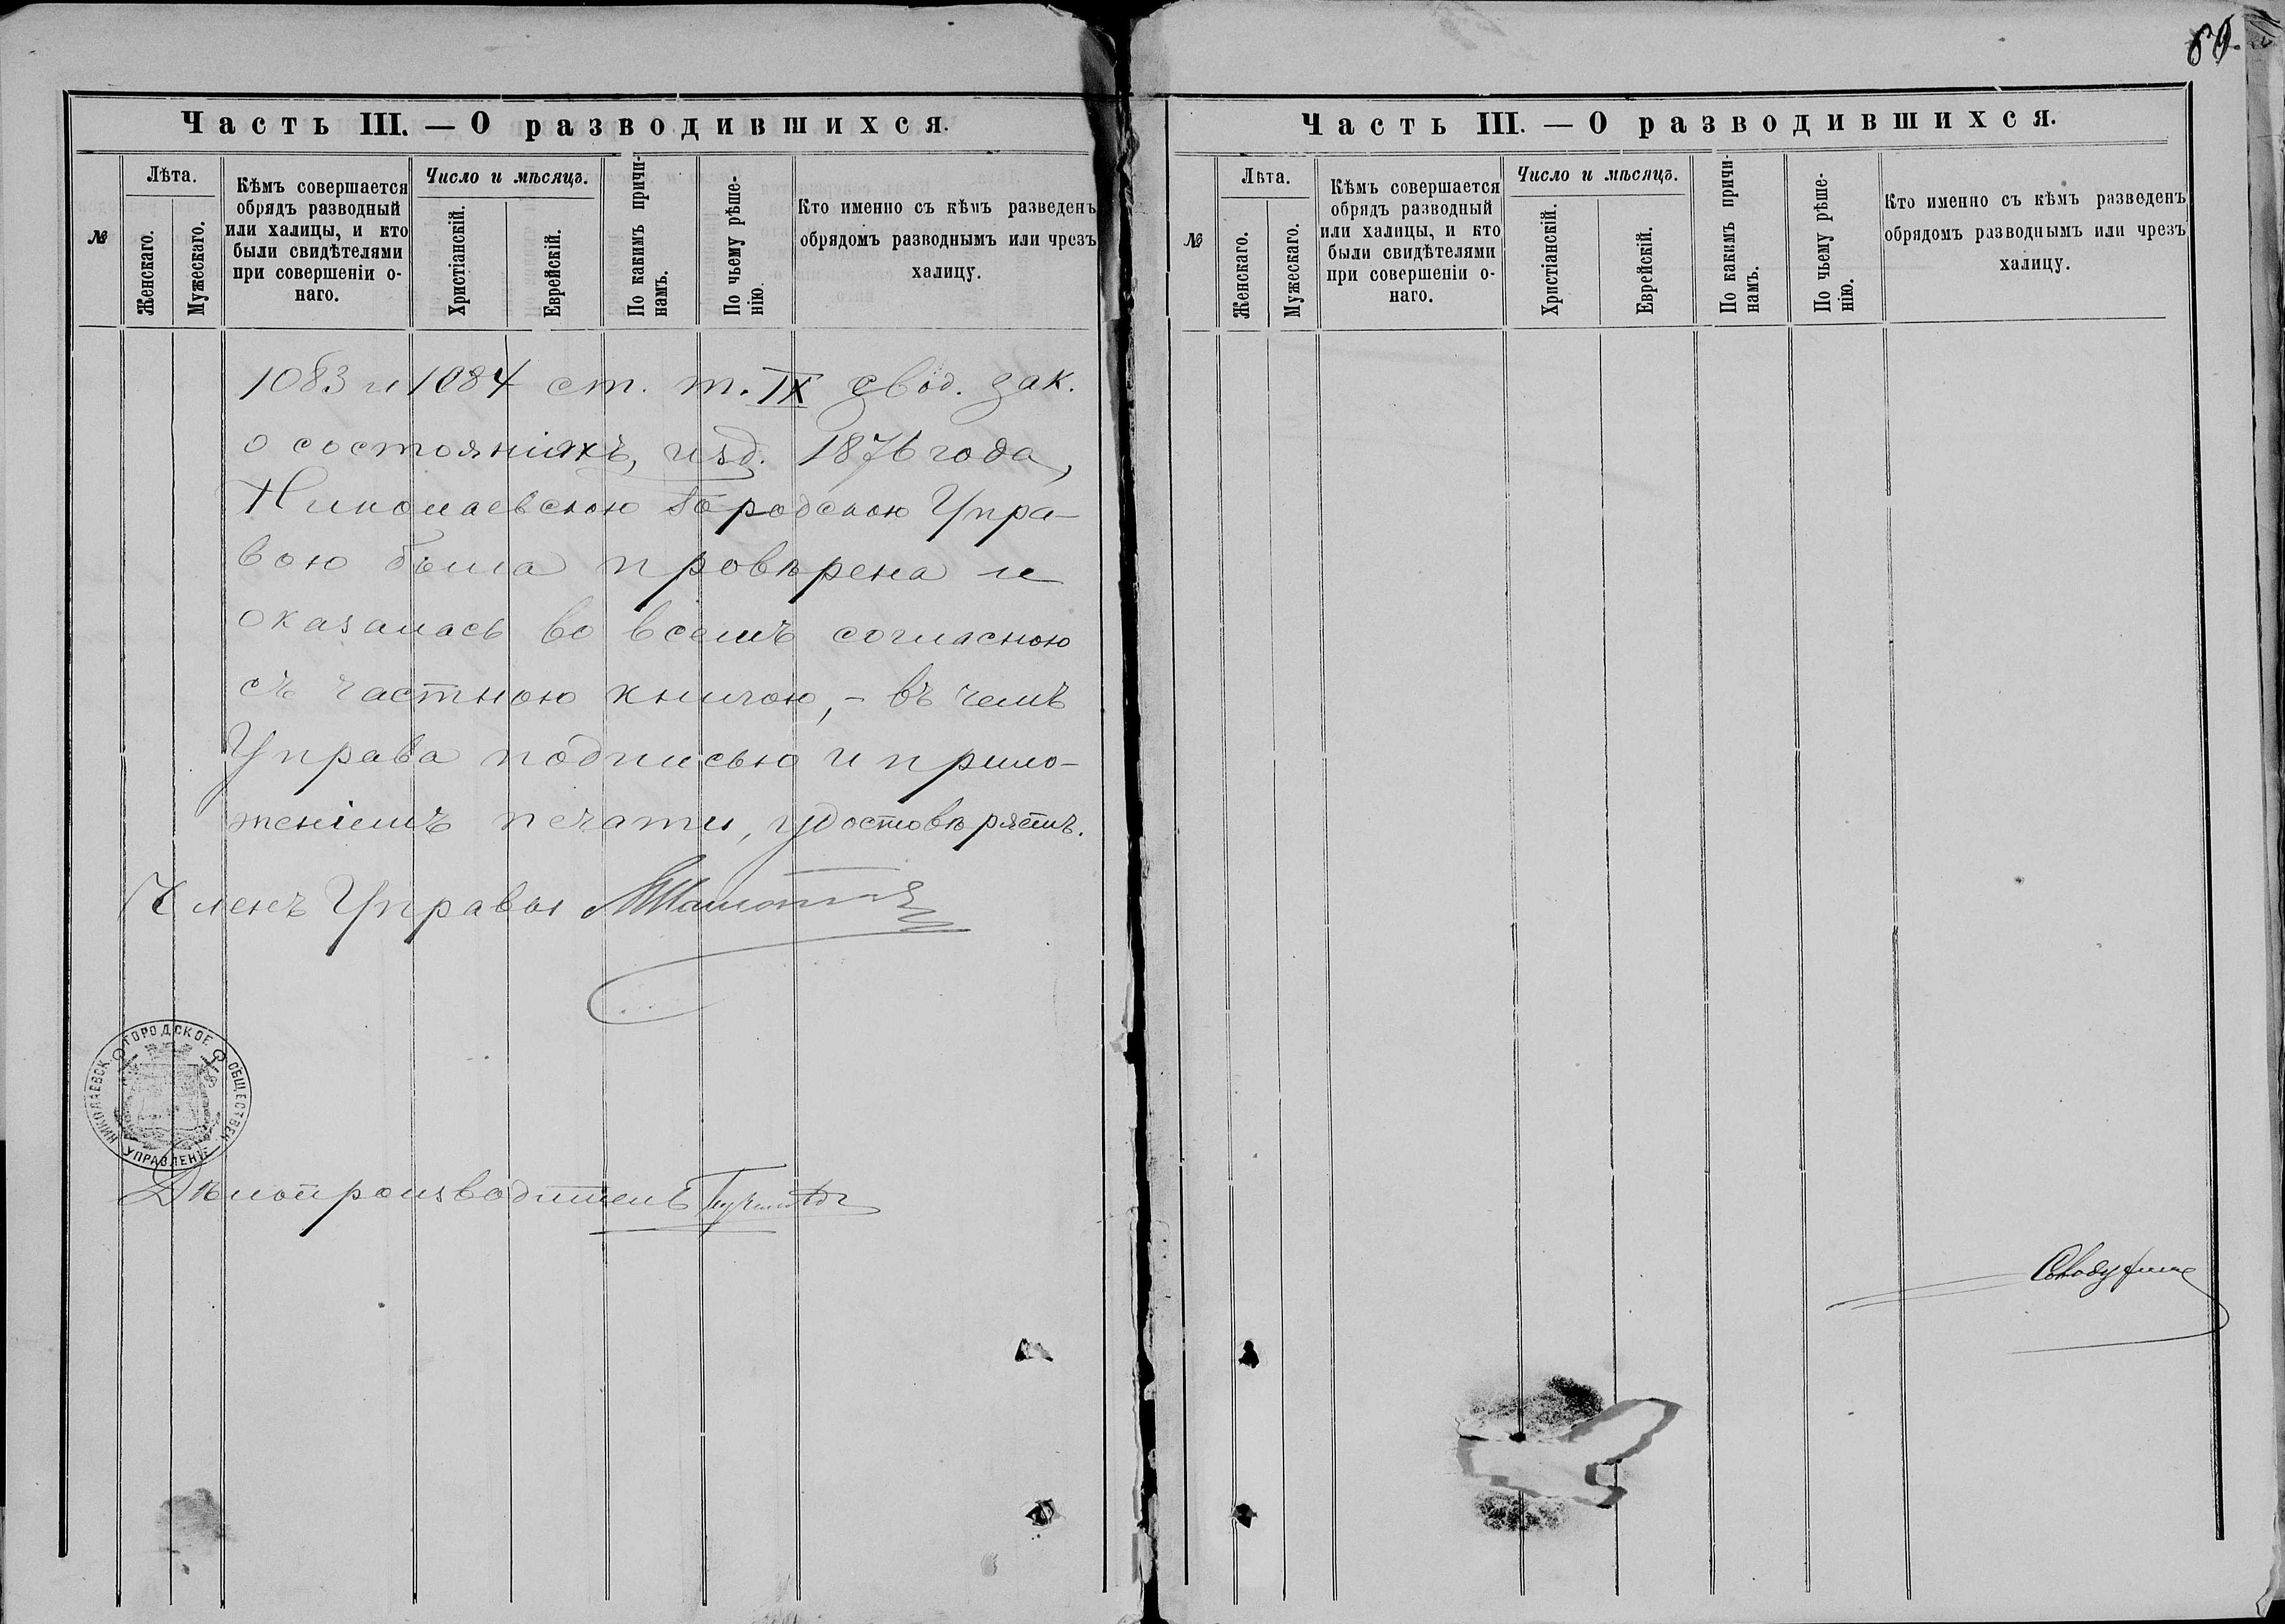 89.
Часть III. — О разводившихся.
№
Лѣта.
Женскаго.
Мужескаго.
Кѣмъ совершается
обрядъ разводный
или халицы, и кто
были свидѣтелями
при совершеніи о-
наго.
Число и мѣсяцъ.
Христіанскій.
Еврейскій.
По какимъ причи-
намъ.
По чьему рѣше-
нію.
Кто именно съ кѣмъ разведенъ
обрядомъ разводнымъ или чрезъ
халицу.
1083 и 1084 ст. т. IX свод. зак.
о состояніяхъ, изд. 1876 года,
Николаевскою Городскою Упра-
вою была провѣрена и
оказалась во всемъ согласною
съ частною книгою, - въ чемъ
Управа подписью и прило-
женіемъ печати, удостовѣряетъ.
Членъ Управы
НИКОЛАЕВСК. ГОРОДСКОЕ ОБЩЕСТВЕН.
УПРАВЛЕНІЕ
Дѣлопроизводитель
Часть III. — О разводившихся.
№
Лѣта.
Женскаго.
Мужескаго.
Кѣмъ совершается
обрядъ разводный
или халицы, и кто
были свидѣтелями
при совершеніи о-
наго.
Число и мѣсяцъ.
Христіанскій.
Еврейскій.
По какимъ причи-
намъ.
По чьему рѣше-
нію.
Кто именно съ кѣмъ разведенъ
обрядомъ разводнымъ или чрезъ
халицу.